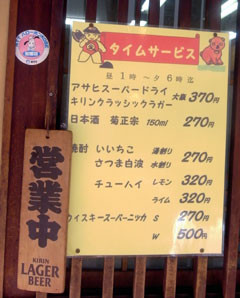 タイムサービス
昼1時〜夕6時迄
アサヒスーパードライ
キリンクラッシックラガー
大瓶 370円
日本酒 菊正宗 150ml 270円
焼酎 いいちこ 湯割り
さつま白波 水割り
270円
チューハイ レモン 320円
ライム 320円
ウイスキースーパーニッカ S 270円
W 500円
営業中
KIRIN
LAGER
BEER